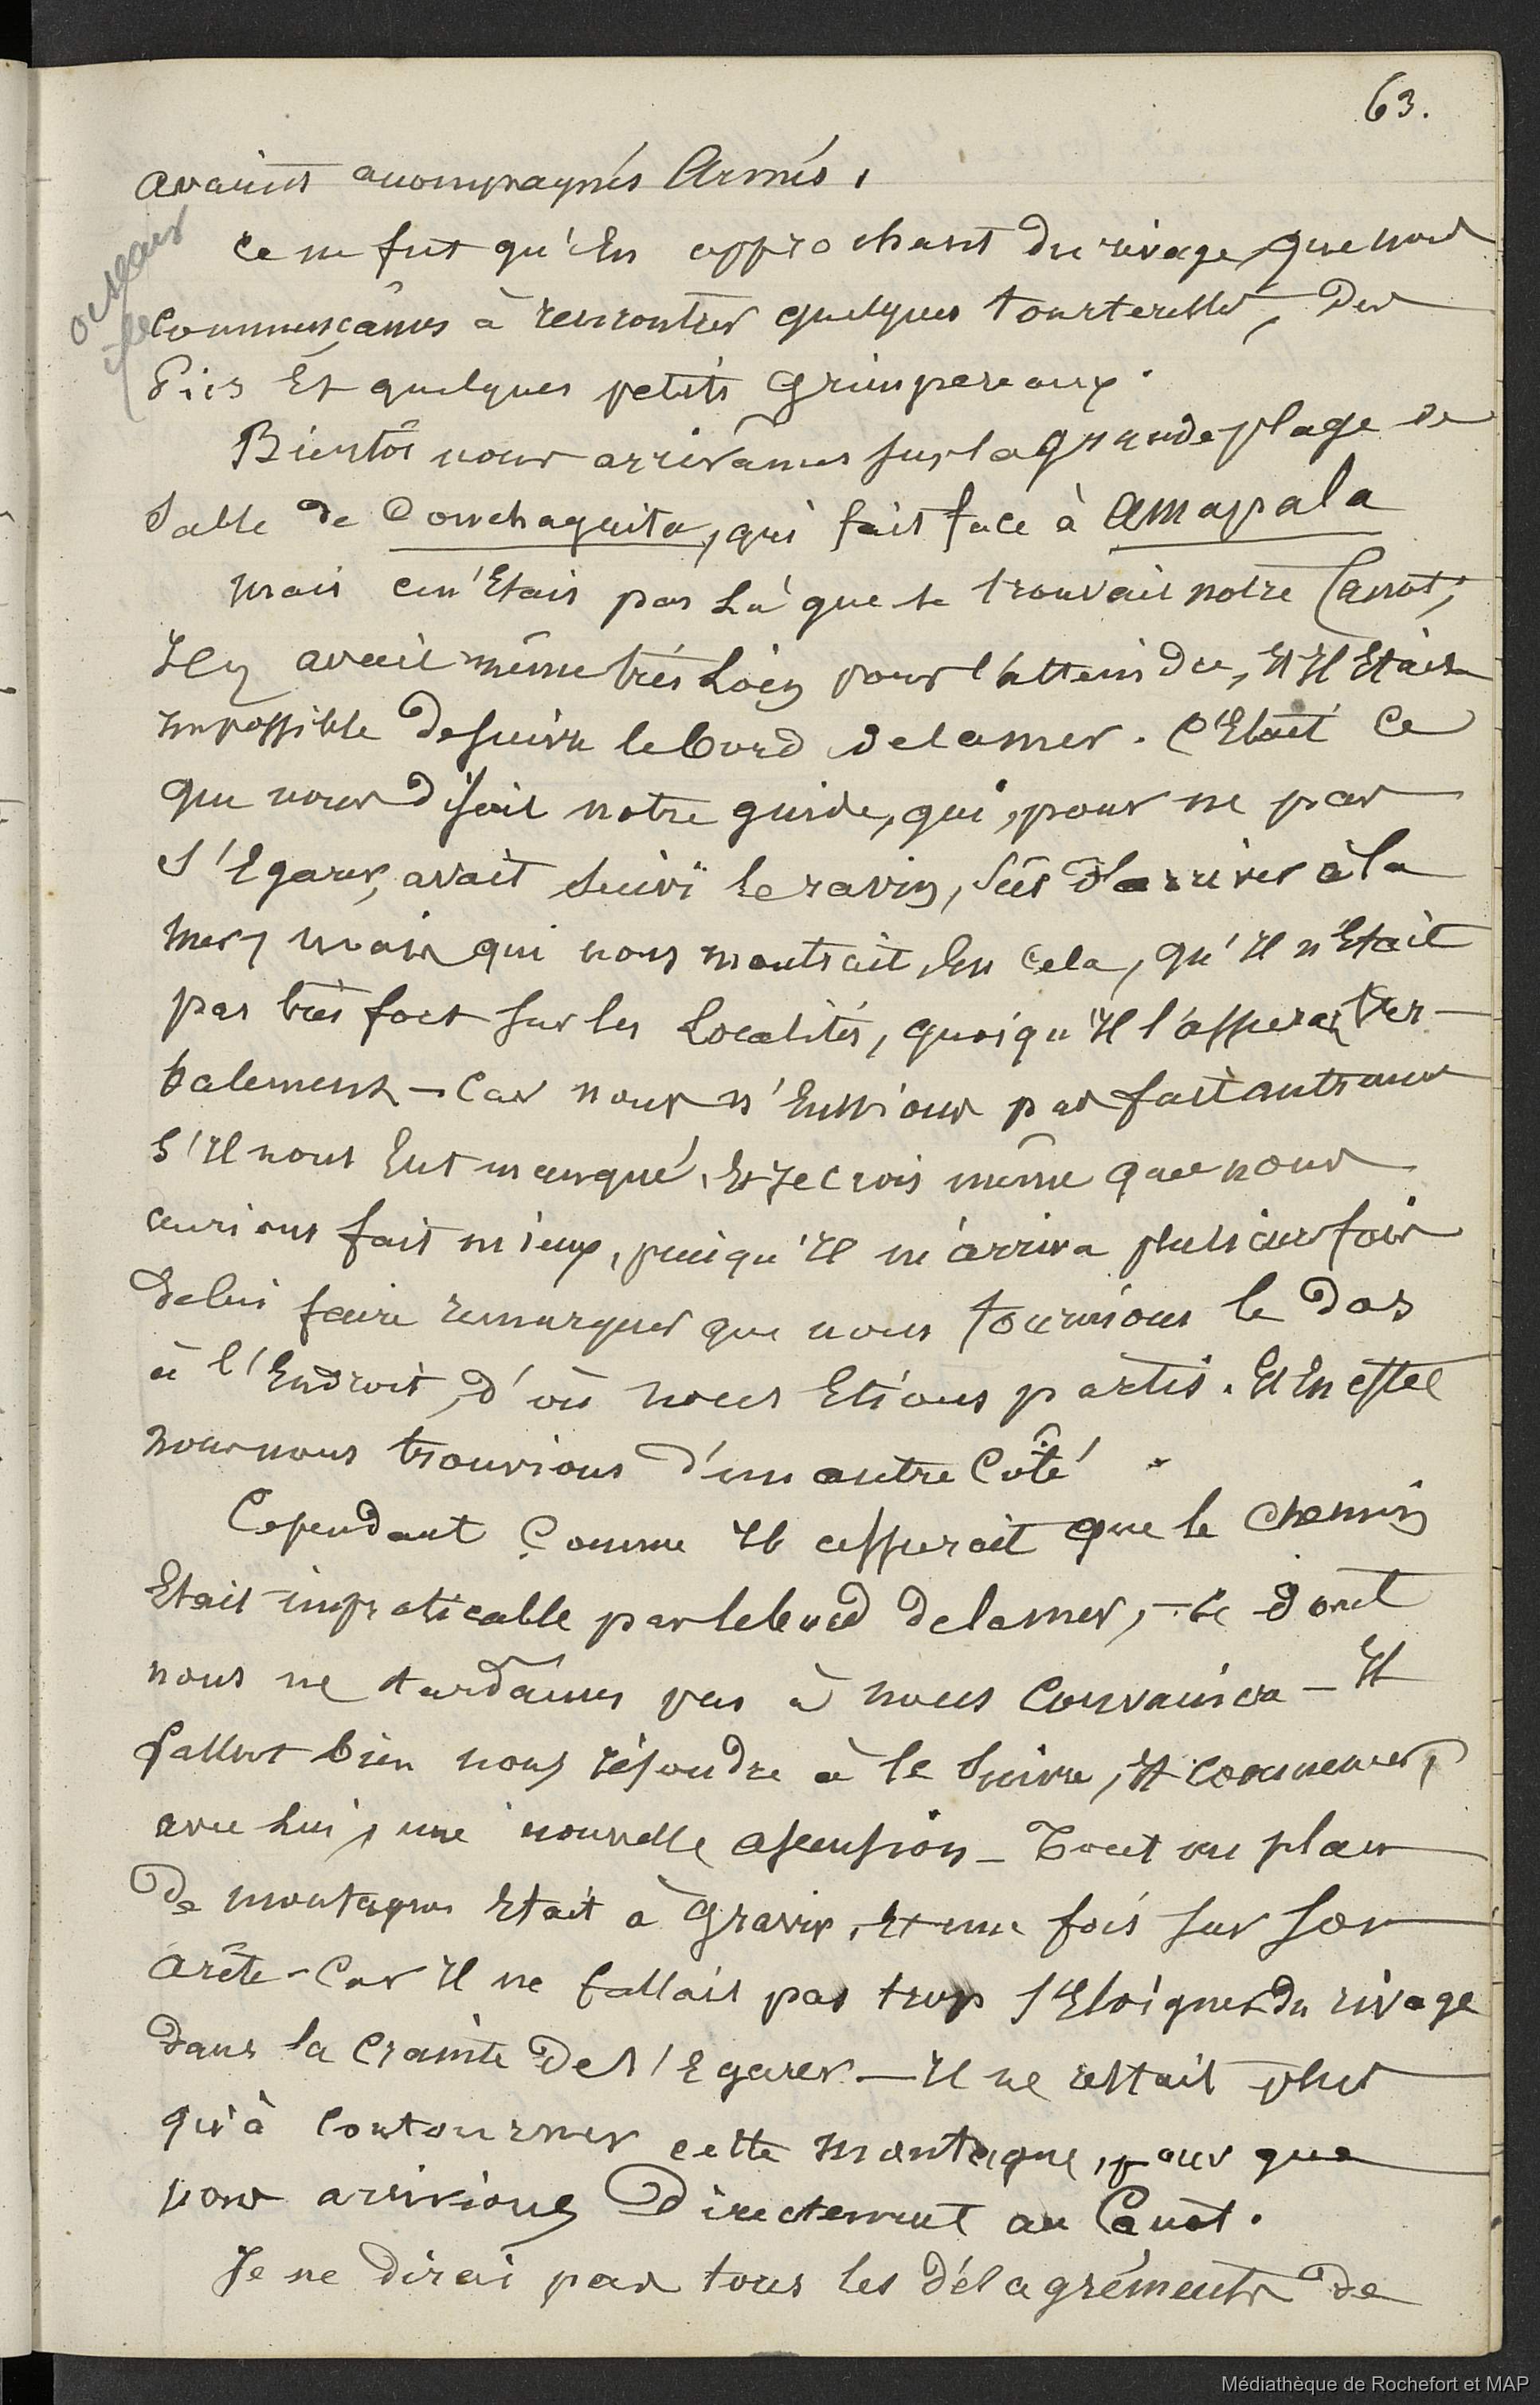 63.
avaient acompagnés Armés.
Ce ne fut qu'En approchant du rivage, que nous
oiseaux
commençâmes à rencontrer quelques tourterelles, des
Pics Et quelques petits Grimpereaux.
Bientôt nous arrivâmes sur la grande plage de
Sable de Conchaguita, qui fait face à Amapala
Mais ce n'Etait pas Là que se trouvait notre Canot;
Il y avait même très Loin pour l'atteindre, Et Il Etait
Impossible de suivre le bord de la mer. C'Etait Ce
que nous disait notre guide, qui, pour ne pas
s'Egarer, avait suivi le ravin, sûr d'arriver à la
Mer, mais qui nous montrait, En cela, qu'Il n'Etait
pas très fort sur les Localités, quoiqu'Il l'assurait Ver-
balement - Car nous n'Eussions pas fait autrement
s'Il nous Eut manqué. Et Je crois même que nous
aurions fait mieux, puisqu'Il m'arriva plusieurs fois
de lui faire remarquer que nous tournions le Dos
à l'Endroit, d'où nous Etions partis. Et En effet
nous nous trouvions d'un autre Côté.
Cependant Comme Il assurait que le Chemin
Etait impraticable par le bord de la mer, - ce dont
nous ne tardâmes pas à nous Convaincre - Il
fallut bien nous résoudre à le Suivre, Et commencer,
avec Lui, une nouvelle ascension - Tout un plan
De montagnes Etait à Gravir, Et une fois sur son
arête - Car Il ne fallait pas trop s'Eloigner du rivage
Dans la Crainte De s'Egarer - Il ne restait plus
qu'à Contourner cette Montagne, pour que
nous arrivions Directement au Canot.
Je ne Dirai pas tous les Désagréments De
Médiathèque de Rochefort et MAP